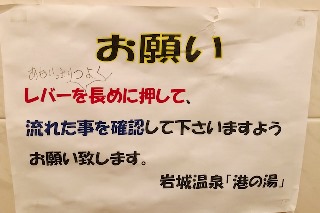 お願い
おもいっきりつよく
レバーを長めに押して、
流れた事を確認して下さいますよう
お願い致します。
岩城温泉「港の湯」